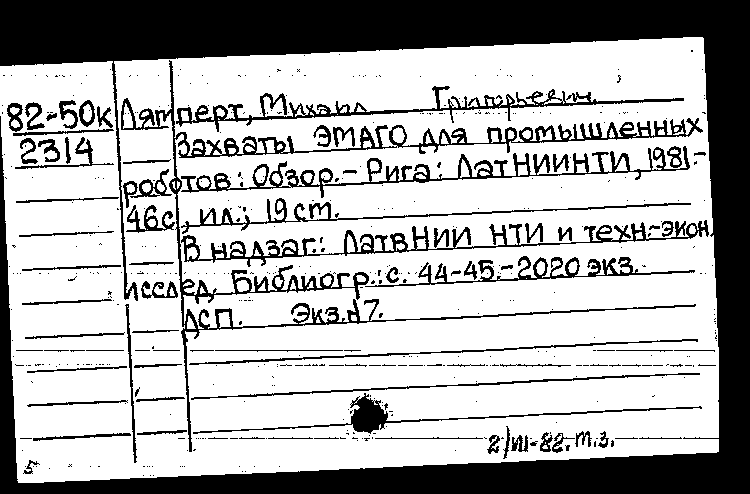 82-50к Лямперт, Михаил Григорьевич.
2314 Захваты ЭМАГО для промышленных
роботов: Обзор.- Рига: ЛатНИИНТИ, 1981.-
46с., ил.; 19 ст.
В надзаг.: ЛатвНИИ НТИ и техн.-экон.
исслед. Библиогр.: с. 44-45.- 2020 экз.
ДСП. Экз.№7.
2/VII-82. т.з.
5